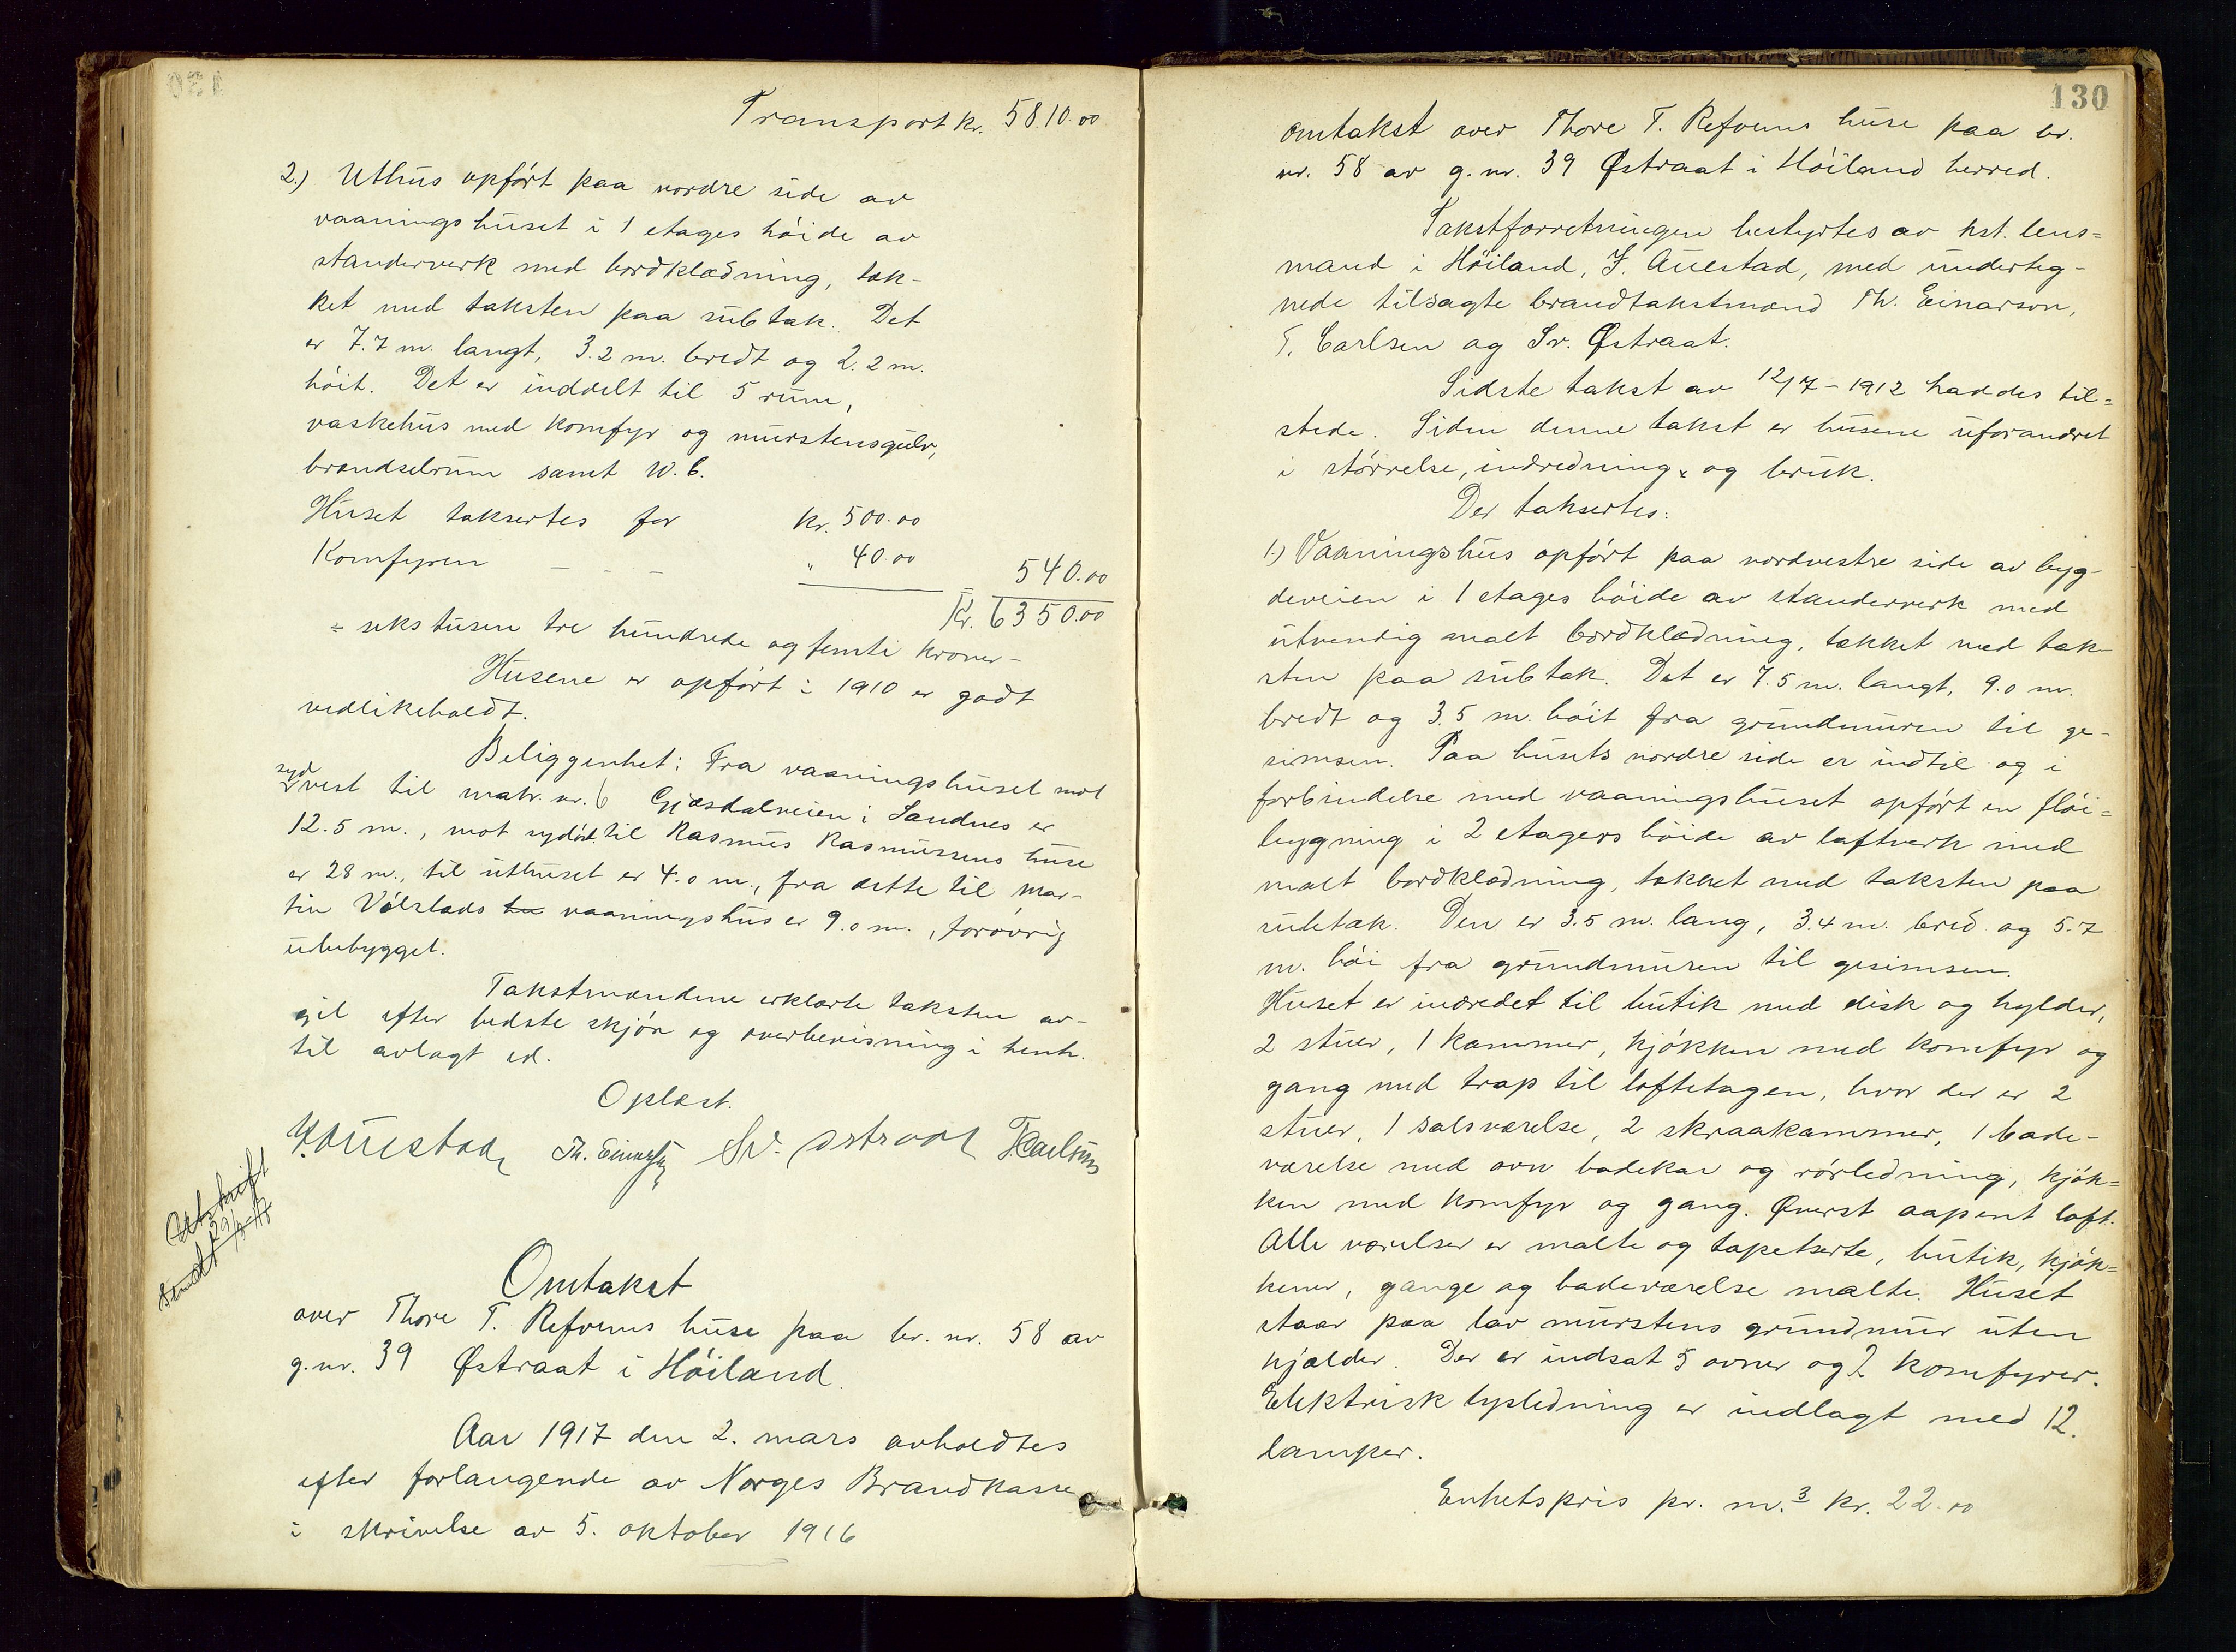 Transport kr. 5810.00
2.) Uthus opført paa nordre side av
vaaningshuset i 1 etages høide av
standerverk med bordklædning, tæk-
ket med taksten paa subtak. Det
er 7.7 m. langt, 3.2 m. bredt og 2.2 m.
høit. Det er inddelt til 5 rum,
vaskehus med komfyr og murstensgulv,
brændselrum samt W.C.
Huset takseres for kr. 500.00
Komfyren — — — " 40.00 540.00
Kr. 6350.00
÷ sekstusen tre hundrede og femti kroner –
Husene er opført i 1910 er godt
vedlikeholdt.
Beliggenhet: Fra vaaningshuset mot
syd
vest til matr. nr. 6 Gjæsdalveien i Sandnes er
12.5 m., mot sydøst til Rasmus Rasmussens huse
er 28 m., til uthuset er 4.0 m., fra dette til Mar-
tin Vølstads vaaningshus er 9.0 m., forøvrig
ubebygget.
Takstmændene erklærte taksten av-
git efter bedste skjøn og overbevisning i henh.
til avlagt ed.
Oplæst.
J. Auestad Th. Einarson Sv. Østraat T. Carlsen
Utskrift
sendt 29/3-17
Omtakst
over Thore T. Refvems huse paa br. nr. 58 av
g.nr. 39 Østraat i Høiland.
Aar 1917 den 2. mars avholdtes
efter forlangende av Norges Brandkasse
i skrivelse av 5. oktober 1916
130
omtakst over Thore T. Refvems huse paa br.
nr. 58 av g.nr. 39 Østraat i Høiland herred.
Takstforretningen bestyrtes av kst. lens=
mand i Høiland, J. Auestad, med underteg-
nede tilsagte brandtakstmænd Th. Einarson,
T. Carlsen og Sv. Østraat.
Sidste takst av 12/7 – 1912 haddes til=
stede. Siden denne takst er husene uforandret
i størrelse, indredning og bruk.
Der taksertes:
1.) Vaaningshus opført paa nordvestre side av byg-
deveien i 1 etages høide av standerverk med
utvendig malt bordklædning, tækket med tak-
sten paa subtak. Det er 7.5 m. langt, 9.0 m.
bredt og 3.5 m. høit fra grundmuren til ge-
simsen. Paa husets nordre side er indtil og i
forbindelse med vaaningshuset opført en fløi=
bygning i 2 etagers høide av laftverk med
malt bordklædning, tækket med taksten paa
subtak. Den er 3.5 m. lang, 3.4 m. bred og 5.7
m. høi fra grundmuren til gesimsen.
Huset er indredet til butik med disk og hylder,
2 stuer, 1 kammer, kjøkken med komfyr og
gang med trap til loftetagen, hvor der er 2
stuer, 1 salsværelse, 2 skraakammer, 1 bade-
værelse med ovn badekar og rørledning, kjøk=
ken med komfyr og gang. Øverst aapent loft.
Alle værelser er malte og tapetserte, butik, kjøk=
kener, gange og badeværelse malte. Huset
staar paa lav murstens grundmur uten
kjælder. Der er indsat 5 ovner og 2 komfyrer.
Elektrisk lysledning er indlagt med 12.
lamper.
Enhetspris pr. m.³ kr. 22.00